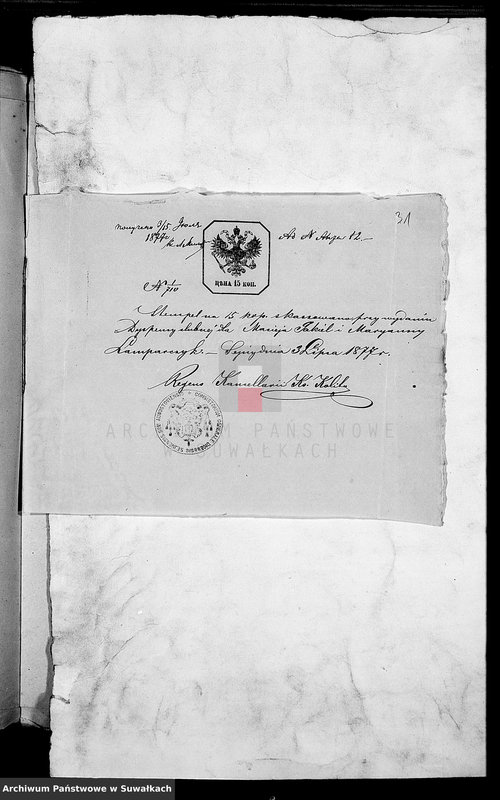 31
3/15
1877
ЦѢНА 15 КОП.
Ad N 12.—
N 1/210
Stempel na 15 kop. skassowano przy wydaniu
Dyspensy ślubnej dla Macieja Jakól i Maryanny
Lamparczyk.— Sejny dnia 3 Lipca 1877 r.
Regens Kancellarii Ks.
ARCHIWUM PAŃSTWOWE
W SUWAŁKACH
Archiwum Państwowe w Suwałkach